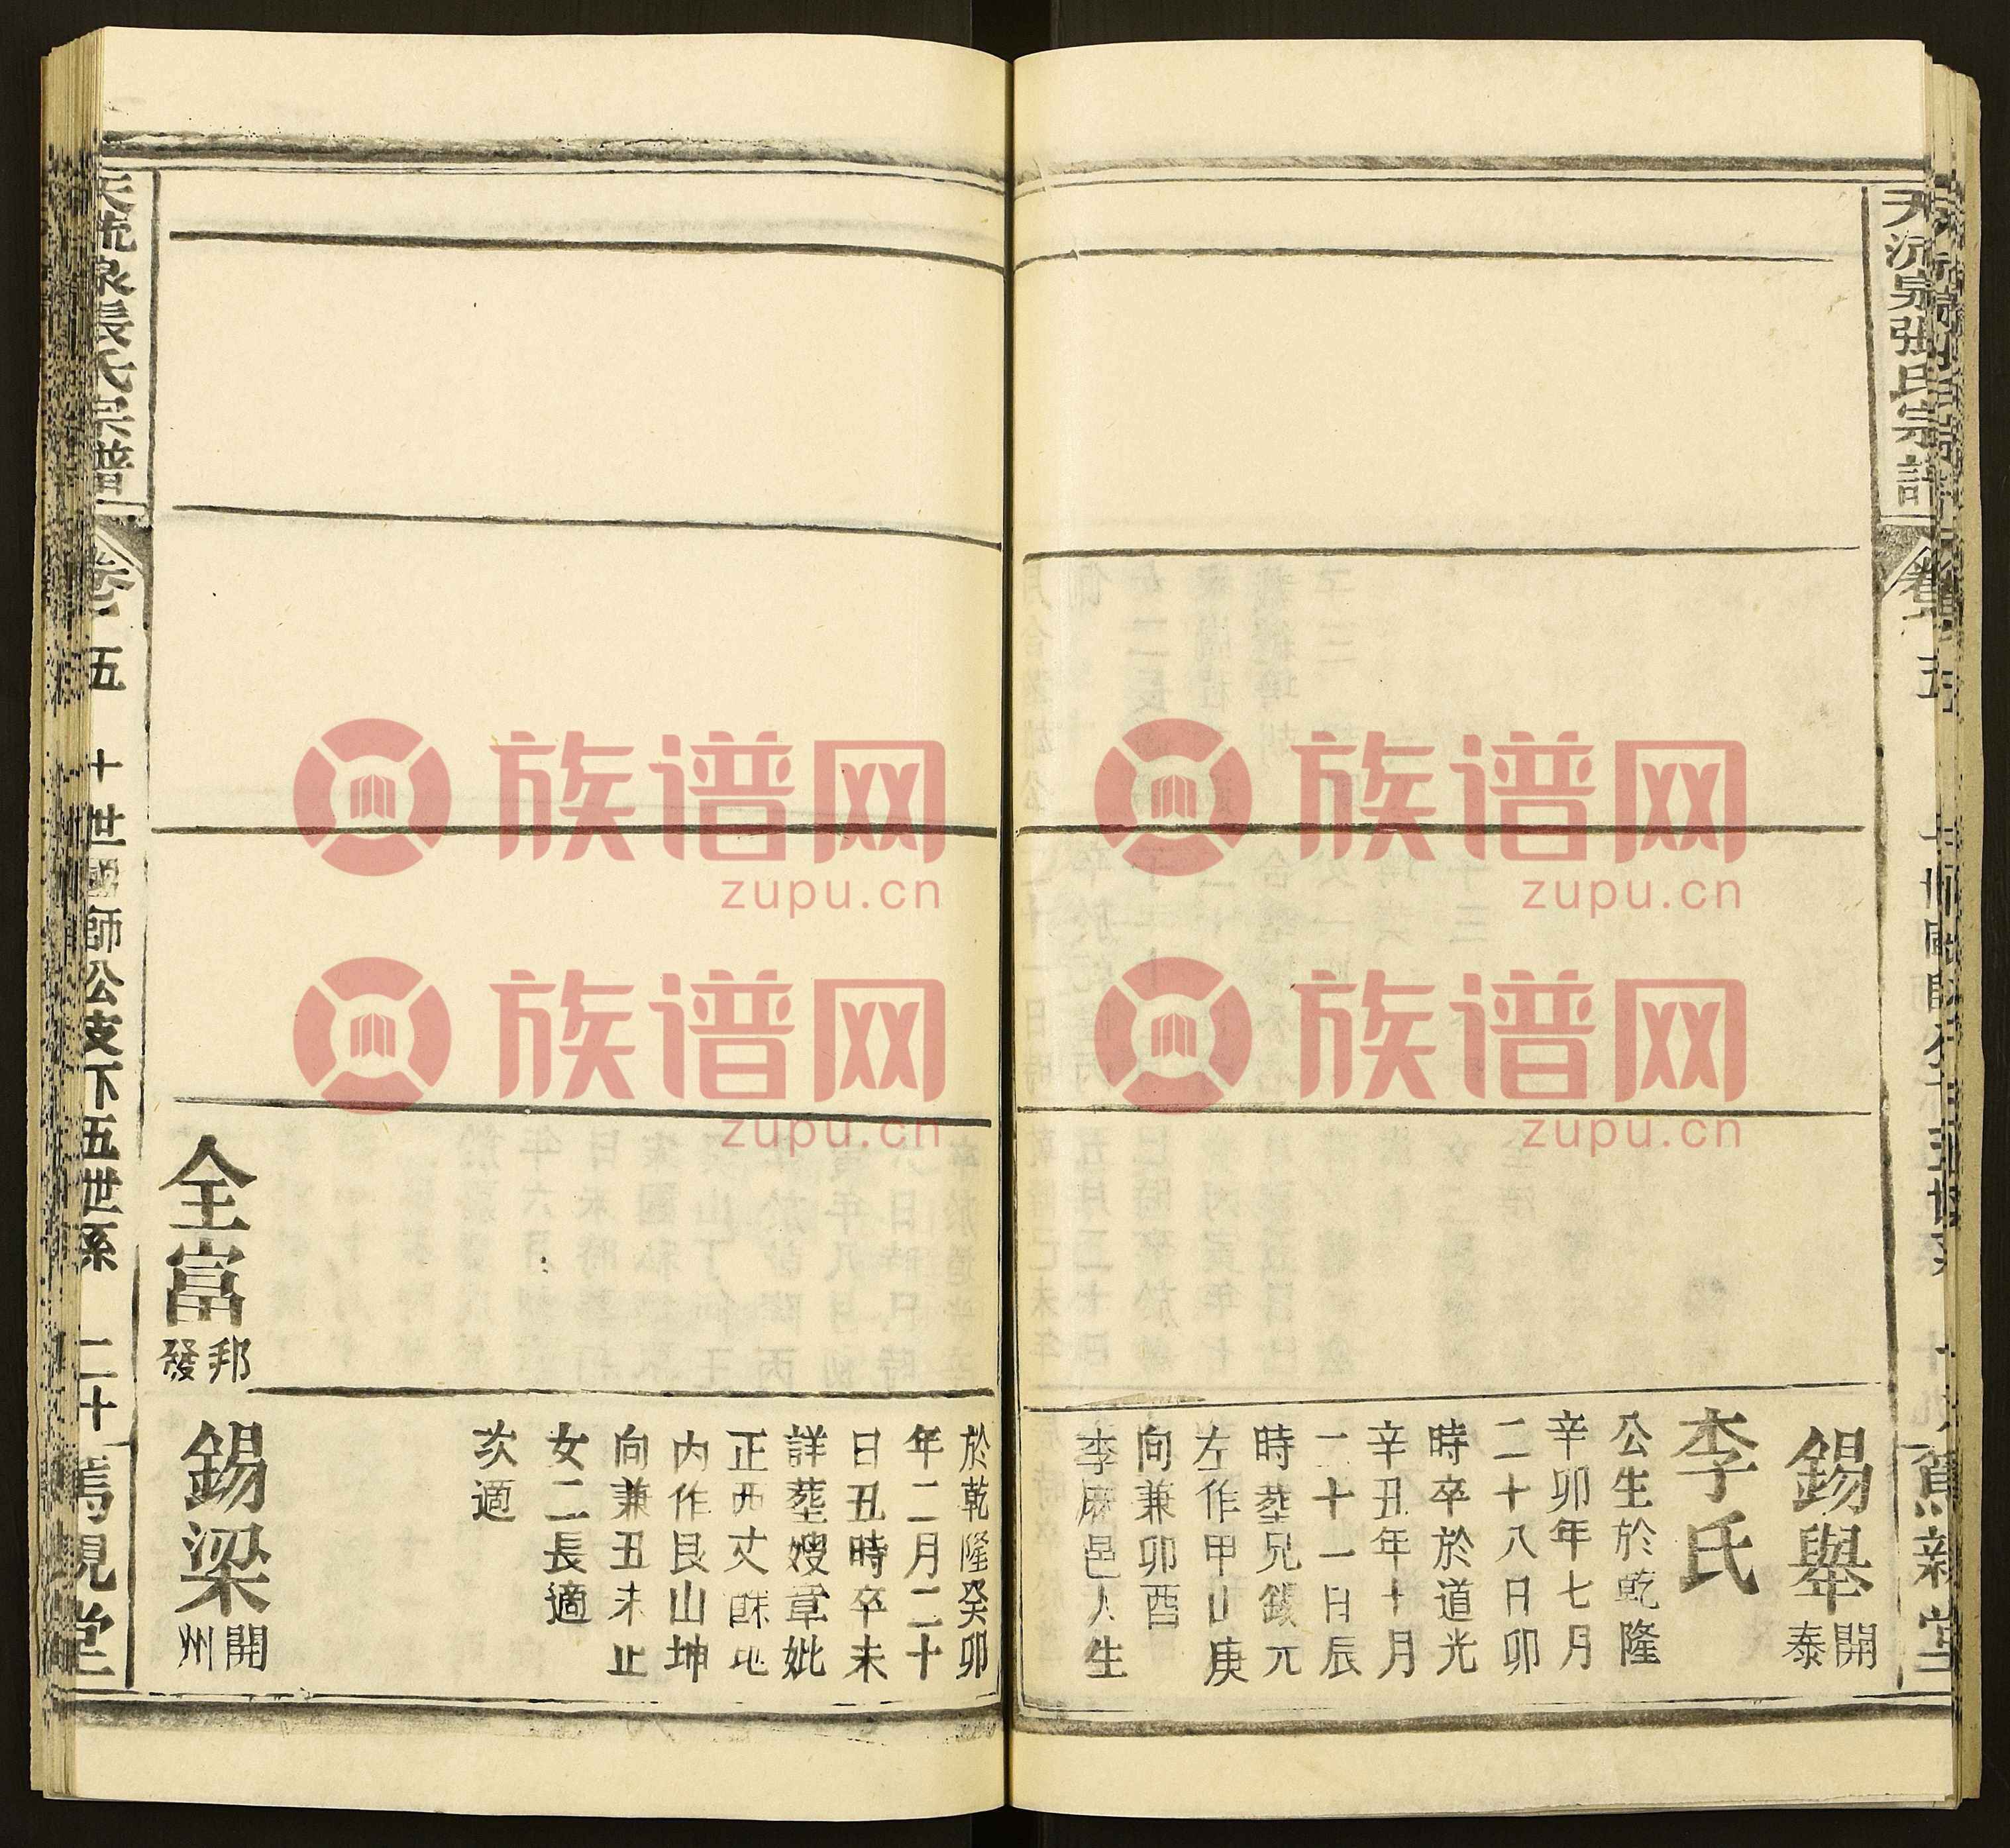 張氏宗譜
錫舉 開泰
李氏
公生於乾隆
辛卯年七月
二十八日卯
時卒於道光
辛丑年十月
二十一日辰
時葬兄錫元
左作甲山庚
向兼卯酉
李麻邑人生
於乾隆癸卯
年二月二十
日丑時卒未
詳葬嫂章妣
正西丈餘地
内作艮山坤
向兼丑未止
女二長適
次適
全富 邦發
錫梁 開州
天沅泉張氏宗譜 卷 五 十世國師公支下五世系 二十
族谱网
zupu.cn
族谱网
zupu.cn
族谱网
zupu.cn
族谱网
zupu.cn